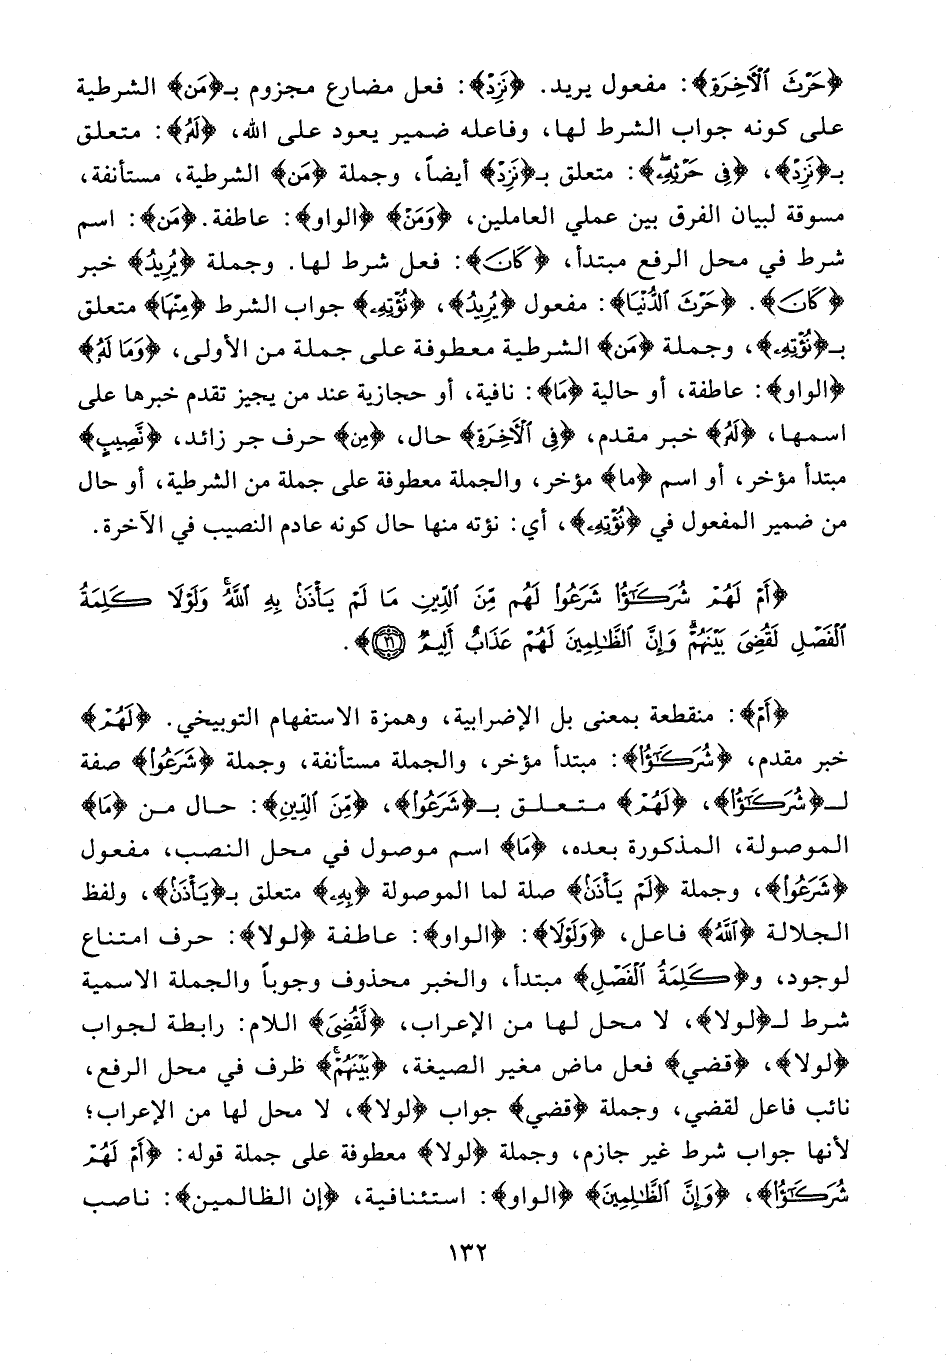 ﴿حَرْثَ ٱلْأَخِرَةِ﴾: مفعول يريد. ﴿نَزِدْ﴾: فعل مضارع مجزوم بـ﴿مَن﴾ الشرطية
على كونه جواب الشرط لها، وفاعله ضمير يعود على الله، ﴿لَهُۥ﴾: متعلق
بـ﴿نَزِدْ﴾، ﴿فِى حَرْثِهِۦ﴾: متعلق بـ﴿نَزِدْ﴾ أيضاً، وجملة ﴿مَن﴾ الشرطية، مستأنفة،
مسوقة لبيان الفرق بين عملي العاملين، ﴿وَمَنْ﴾ ﴿الواو﴾: عاطفة. ﴿مَن﴾: اسم
شرط في محل الرفع مبتدأ، ﴿كَانَ﴾: فعل شرط لها. وجملة ﴿يُرِيدُ﴾ خبر
﴿كَانَ﴾. ﴿حَرْثَ ٱلدُّنْيَا﴾: مفعول ﴿يُرِيدُ﴾، ﴿نُؤْتِهِۦ﴾ جواب الشرط ﴿مِنْهَا﴾ متعلق
بـ﴿نُؤْتِهِۦ﴾، وجملة ﴿مَن﴾ الشرطية معطوفة على جملة من الأولى، ﴿وَمَا لَهُۥ﴾
﴿الواو﴾: عاطفة، أو حالية ﴿مَا﴾: نافية، أو حجازية عند من يجيز تقدم خبرها على
اسمها، ﴿لَهُۥ﴾ خبر مقدم، ﴿فِى ٱلْأَخِرَةِ﴾ حال، ﴿مِن﴾ حرف جر زائد، ﴿نَّصِيبٍ﴾
مبتدأ مؤخر، أو اسم ﴿ما﴾ مؤخر، والجملة معطوفة على جملة من الشرطية، أو حال
من ضمير المفعول في ﴿نُؤْتِهِۦ﴾، أي: نؤته منها حال كونه عادم النصيب في الآخرة.
﴿أَمْ لَهُمْ شُرَكَٰٓؤُا۟ شَرَعُوا۟ لَهُم مِّنَ ٱلدِّينِ مَا لَمْ يَأْذَنۢ بِهِ ٱللَّهُ ۚ وَلَوْلَا كَلِمَةُ
ٱلْفَصْلِ لَقُضِىَ بَيْنَهُمْ ۗ وَإِنَّ ٱلظَّٰلِمِينَ لَهُمْ عَذَابٌ أَلِيمٌ ۝٢١﴾.
﴿أَمْ﴾: منقطعة بمعنى بل الإضرابية، وهمزة الاستفهام التوبيخي. ﴿لَهُمْ﴾
خبر مقدم، ﴿شُرَكَٰٓؤُا۟﴾: مبتدأ مؤخر، والجملة مستأنفة، وجملة ﴿شَرَعُوا۟﴾ صفة
لـ﴿شُرَكَٰٓؤُا۟﴾، ﴿لَهُمْ﴾ متعلق بـ﴿شَرَعُوا۟﴾، ﴿مِّنَ ٱلدِّينِ﴾: حال من ﴿مَا﴾
الموصولة، المذكورة بعده، ﴿مَا﴾ اسم موصول في محل النصب، مفعول
﴿شَرَعُوا۟﴾، وجملة ﴿لَمْ يَأْذَنۢ﴾ صلة لما الموصولة ﴿بِهِۦ﴾ متعلق بـ﴿يَأْذَنۢ﴾، ولفظ
الجلالة ﴿ٱللَّهُ﴾ فاعل، ﴿وَلَوْلَا﴾: ﴿الواو﴾: عاطفة ﴿لولا﴾: حرف امتناع
لوجود، و﴿كَلِمَةُ ٱلْفَصْلِ﴾ مبتدأ، والخبر محذوف وجوباً والجملة الاسمية
شرط لـ﴿لولا﴾، لا محل لها من الإعراب، ﴿لَقُضِىَ﴾ اللام: رابطة لجواب
﴿لولا﴾، ﴿قضي﴾ فعل ماض مغير الصيغة، ﴿بَيْنَهُمْ ۚ﴾ ظرف في محل الرفع،
نائب فاعل لقضي، وجملة ﴿قضي﴾ جواب ﴿لولا﴾، لا محل لها من الإعراب؛
لأنها جواب شرط غير جازم، وجملة ﴿لولا﴾ معطوفة على جملة قوله: ﴿أَمْ لَهُمْ
شُرَكَٰٓؤُا۟﴾، ﴿وَإِنَّ ٱلظَّٰلِمِينَ﴾ ﴿الواو﴾: استئنافية، ﴿إن الظالمين﴾: ناصب
١٣٢